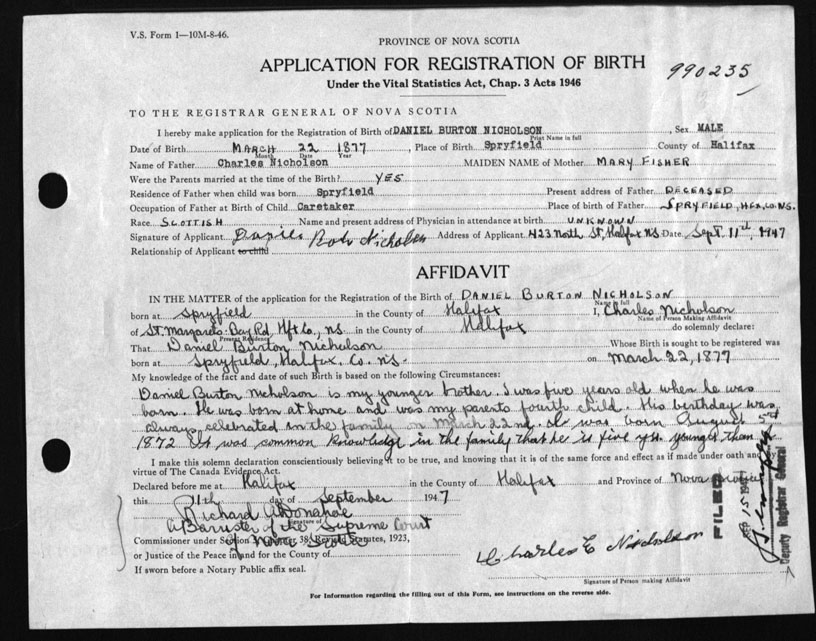 V.S. Form 1—10M-8-46.
PROVINCE OF NOVA SCOTIA
APPLICATION FOR REGISTRATION OF BIRTH
990235
Under the Vital Statistics Act, Chap. 3 Acts 1946
TO THE REGISTRAR GENERAL OF NOVA SCOTIA
I hereby make application for the Registration of Birth of DANIEL BURTON NICHOLSON, Sex MALE
Print Name in full
Date of Birth MARCH 22 1877, Place of Birth Spryfield County of Halifax
Month Date Year
Name of Father Charles Nicholson MAIDEN NAME of Mother MARY FISHER
Were the Parents married at the time of the Birth? YES
Residence of Father when child was born Spryfield Present address of Father DECEASED
Occupation of Father at Birth of Child Caretaker Place of birth of Father SPRYFIELD, HFX, CO. NS.
Race SCOTTISH Name and present address of Physician in attendance at birth UNKNOWN
Signature of Applicant Daniel Nicholson Address of Applicant 423 North St, Halifax NS Date Sept. 11th, 1947
Relationship of Applicant to child
AFFIDAVIT
IN THE MATTER of the application for the Registration of the Birth of DANIEL BURTON NICHOLSON
Name in full
born at Spryfield in the County of Halifax I, Charles Nicholson
Name of Person Making Affidavit
of St. Margarets Bay Rd. Hfx Co., NS in the County of Halifax do solemnly declare:
Present Residence
That Daniel Burton Nicholson Whose Birth is sought to be registered was
born at Spryfield, Halifax. Co. NS on March 22, 1877
My knowledge of the fact and date of such Birth is based on the following Circumstances:
Daniel Burton Nicholson is my younger brother. I was five years old when he was
born. He was born at home and was my parents fourth child. His birthday was
always celebrated in the family on March 22nd. was born August
1872 It was common knowledge in the family that he is five yrs. younger than
I make this solemn declaration conscientiously believing it to be true, and knowing that it is of the same force and effect as if made under oath and by
virtue of The Canada Evidence Act.
Declared before me at Halifax in the County of Halifax and Province of Nova Scotia
this 11th day of September 1947
Richard A Donahoe
Signature of
A Barrister of the Supreme Court
of Nova Scotia
Commissioner under Section 38, Revised Statutes, 1923,
or Justice of the Peace in and for the County of
If sworn before a Notary Public affix seal.
Charles E Nicholson
Signature of Person making Affidavit
FILED
SEP 15 1947
Deputy Registrar General
For Information regarding the filling out of this Form, see instructions on the reverse side.